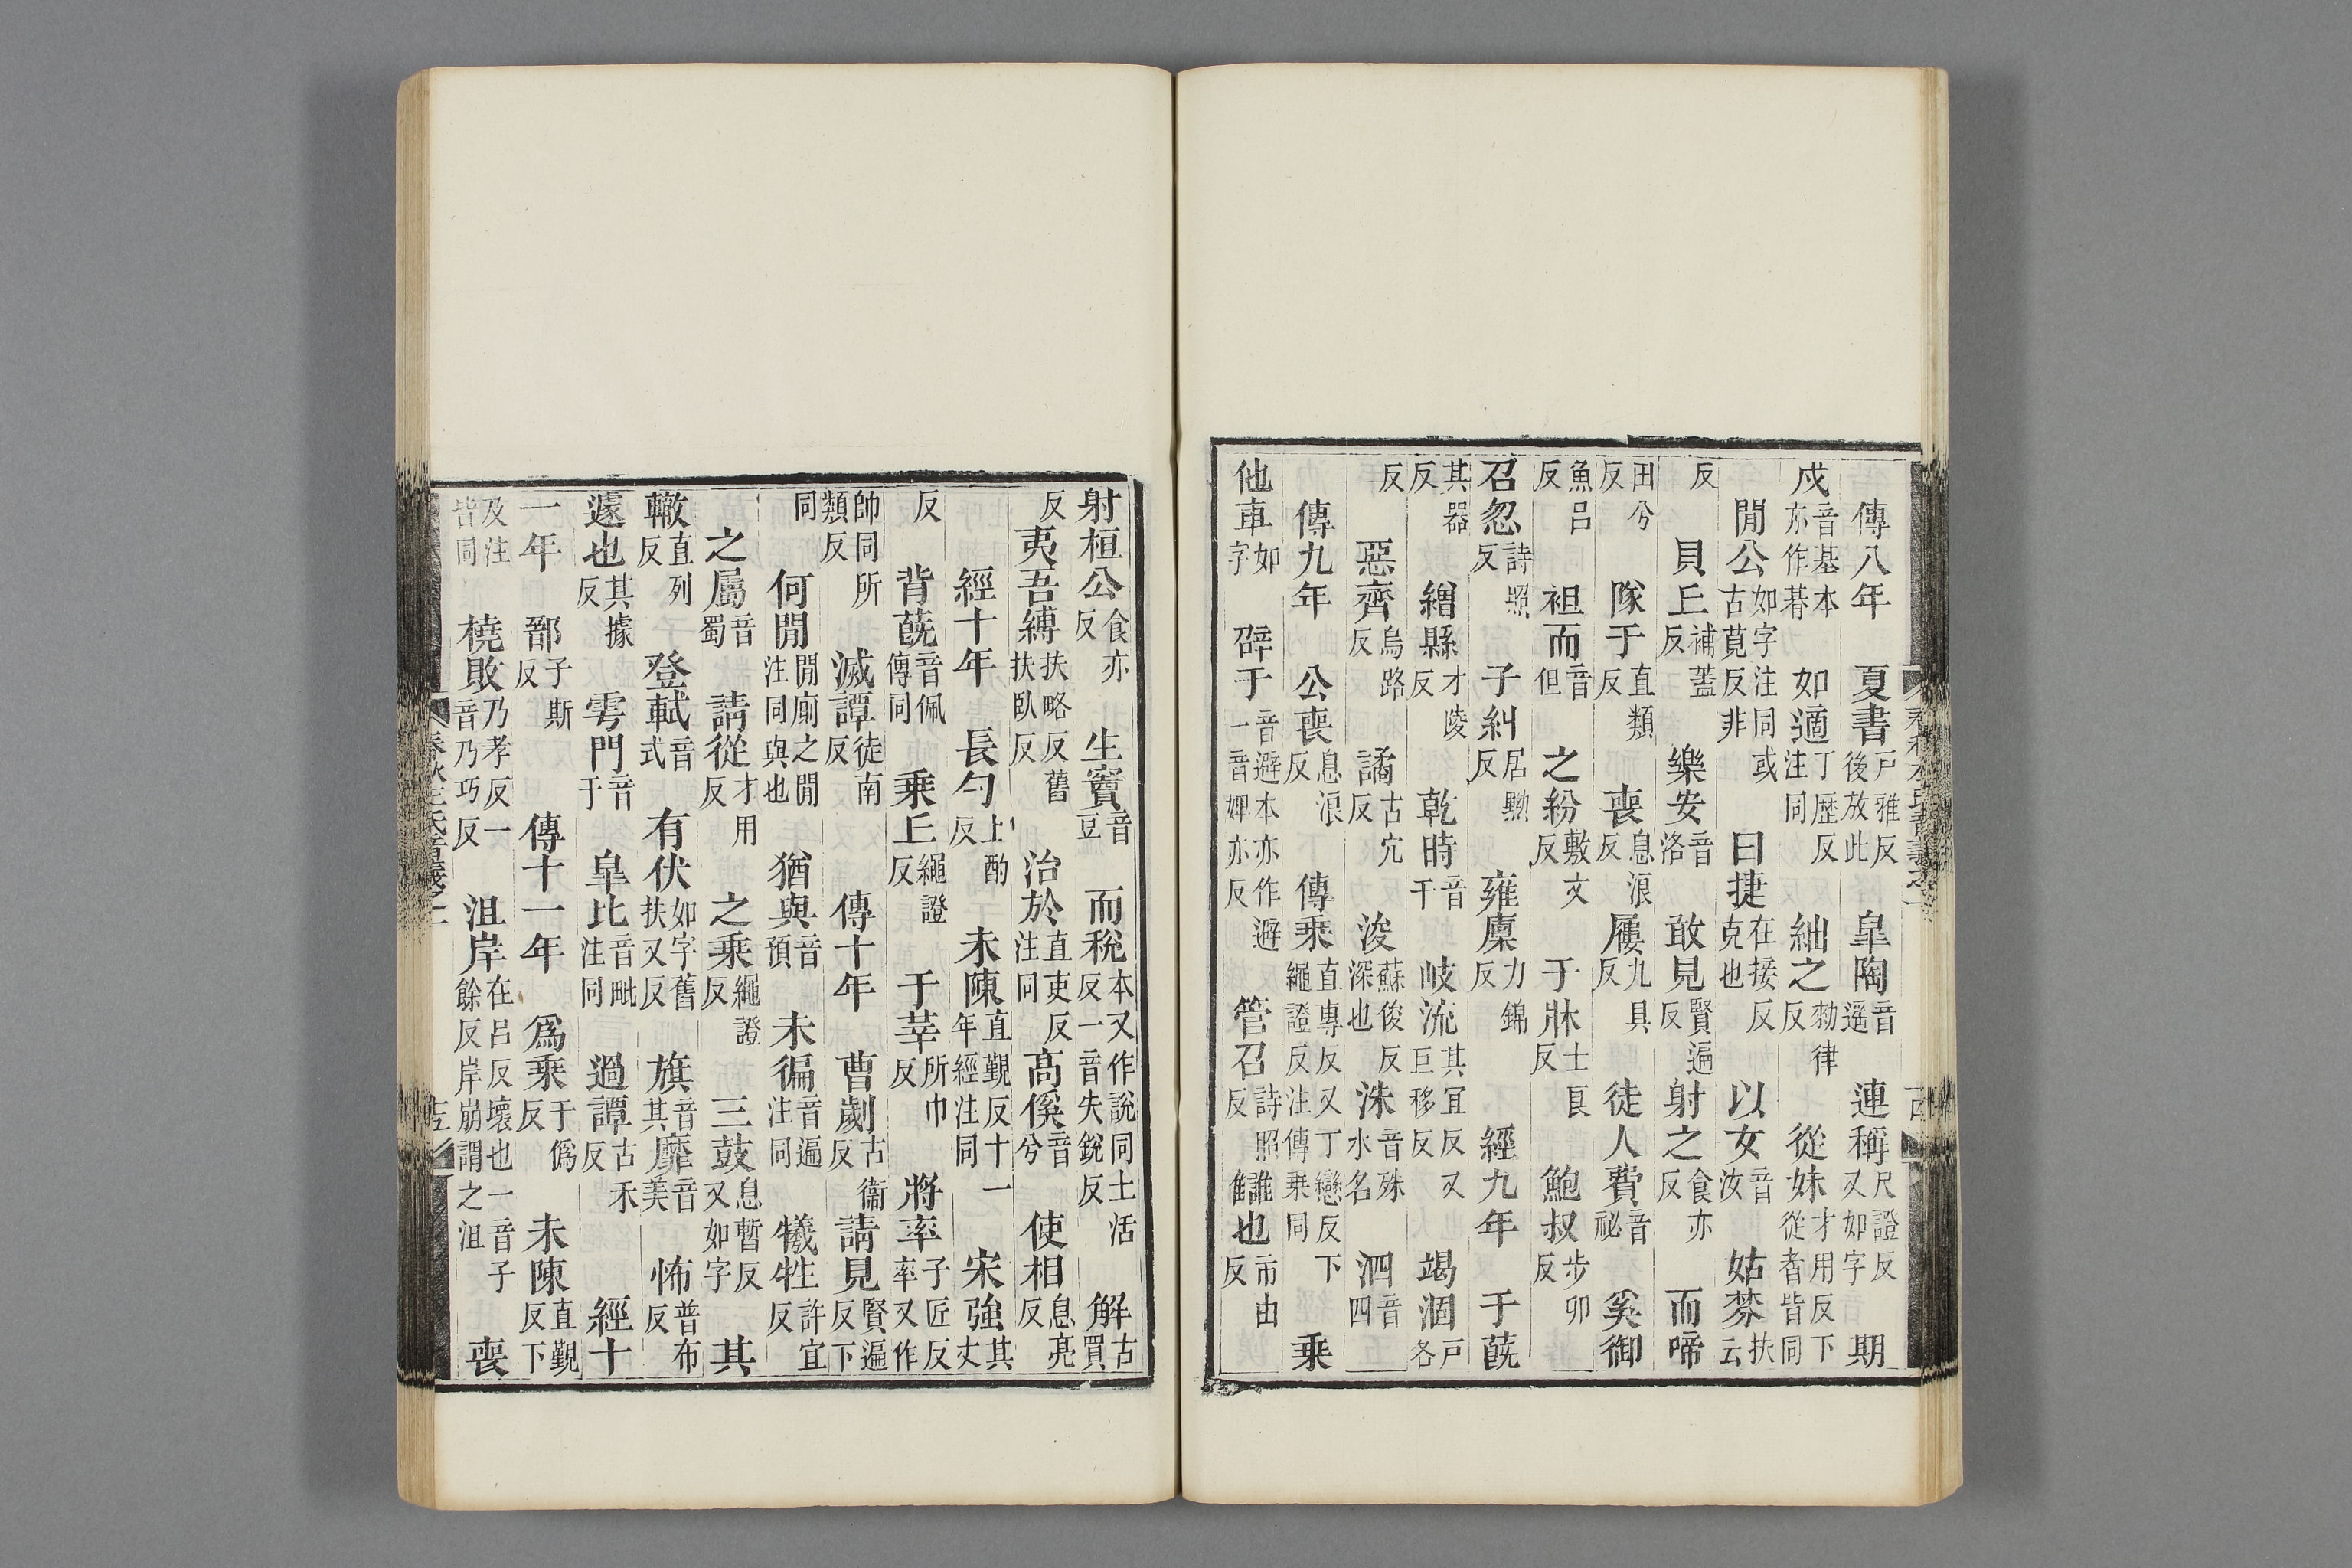 傳八年 夏書戸雅反後放此 皐陶音遥 連稱尺證反又如字 期
戍音基本亦作朞 如適丁歴反注同 絀之勑律反 從妹才用反下從者皆同
閒公如字注同或古莧反非 曰捷在接反克也 以女音汝 姑棼扶云
反 貝丘補蓋反 樂安音洛 敢見賢遍反 射之食亦反 而啼
田兮反 隊于直類反 喪息浪反 屨九具反 徒人費音祕 奚御
魚呂反 袒而音但 之紛敷文反 于牀士良反 鮑叔步卯反
召忽詩照反 子糾居黝反 雍廩力錦反 經九年 于蔇
其器反 繒縣才陵反 乾時音干 岐流其宜反又巨移反 竭涸戸各
反 惡齊烏路反 譎古宂反 浚蘇俊反深也 洙音殊水名 泗音四
傳九年 公喪息浪反 傳乘直專反又丁戀反下繩證反注傳乗同 乗
他車如字 辟于音避本亦作避一音婢亦反 管召詩照反 讎也市由反
射桓公食亦反 生竇音豆 而稅本又作説同土活反一音失銳反 解古買
反 夷吾縛扶略反舊扶臥反 治於直吏反注同 高傒音兮 使相息亮反
經十年 長勺上酌反 未陳直覲反十一年經注同 宋強其丈
反 背蔇音佩傳同 乗丘繩證反 于莘所巾反 將率子匠反率又作
帥同所類反 滅譚徒南反 傳十年 曹劌古衞反 請見賢遍反下
同 何閒閒廁之閒注同與也 猶與音預 未徧音遍注同 犧牲許宜反
之屬音蜀 請從才用反 之乘繩證反 三鼓息暫反又如字 其
轍直列反 登軾音式 有伏如字舊扶又反 旗音其 靡音美 怖普布反
遽也其據反 雩門音于 皐比音毗注同 過譚古禾反 經十
一年 鄑子斯反 傳十一年 爲乗于僞反 未陳直覲反下
及注皆同 橈敗乃孝反一音乃巧反 沮岸在呂反壞也一音子餘反岸崩謂之沮 喪